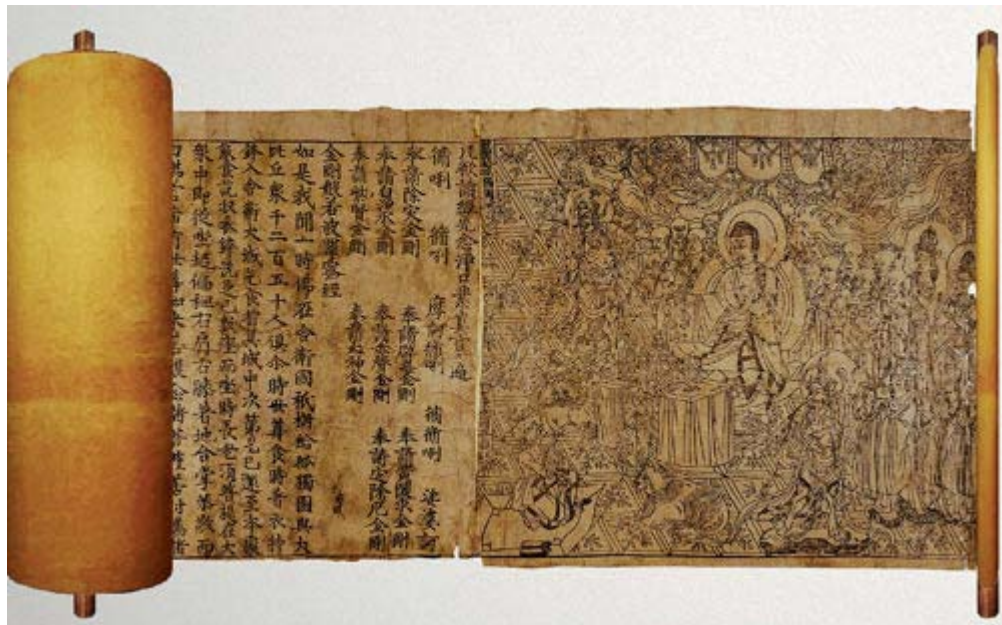 凡欲讀經先念淨口業真言遍
脩唎 脩唎 摩訶脩唎 脩脩唎 娑婆訶
奉請除災金剛 奉請辟毒金剛 奉請黃隨求金剛
奉請白淨水金剛 奉請赤聲金剛 奉請定除厄金剛
奉請紫賢金剛 奉請大神金剛
金剛般若波羅蜜經
如是我聞一時佛在舍衛國祇樹給孤獨園與大
比丘眾千二百五十人俱尒時世尊食時著衣持
鉢入舍衛大城乞食於其城中次第乞已還至本處
飯食訖收衣鉢洗足已敷座而坐時長老須菩提在大
眾中即從座起偏袒右肩右膝著地合掌恭敬而
白佛言希有世尊如來善護念諸菩薩善付囑諸